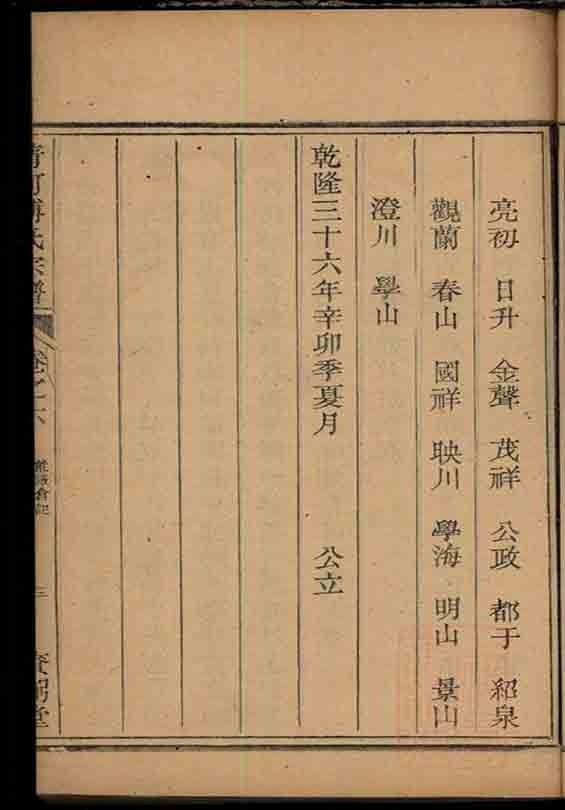 亮初 日升 金聲 茂祥 公政 都于 紹泉
觀蘭 春山 國祥 映川 學海 明山 景山
澄川 學山
乾隆三十六年辛卯季夏月 公立
清河 氏宗譜 卷之六 三 堂